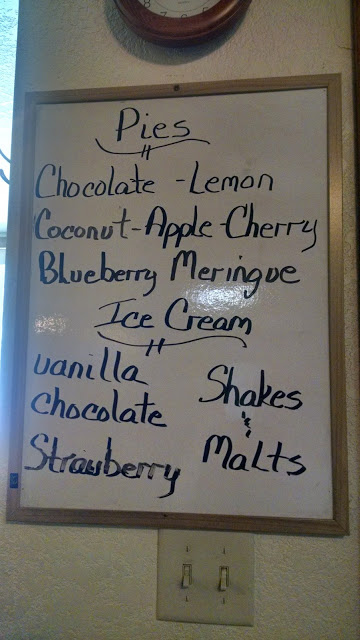 Pies
Chocolate - Lemon
Coconut - Apple - Cherry
Blueberry Meringue
Ice Cream
vanilla
chocolate
Strawberry
Shakes
&
Malts